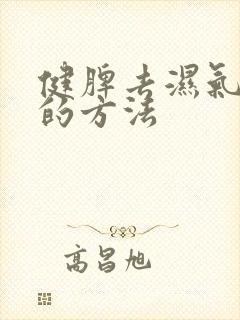 健脾去濕氣
的方法
高昌旭